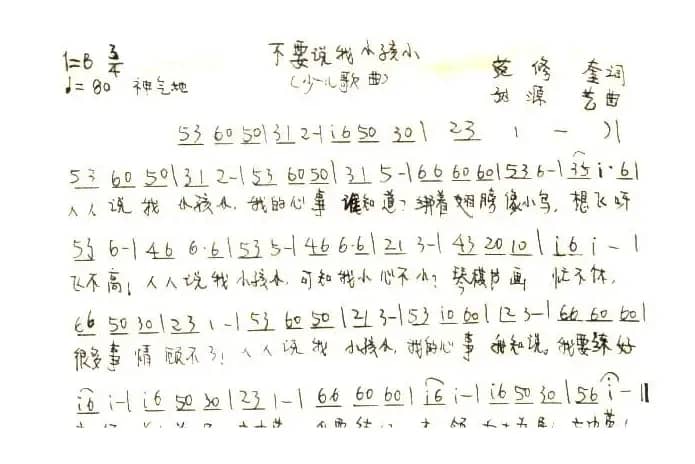 1=B 3/4
不要说我小孩小
♩=80 神气地
(少儿歌曲)
范修奎词
源艺曲
53 60 50|31 2-|i6 50 30| 23 1 - )|
53 60 50|31 2-|53 6050|31 5-|66 60 60|536-|35 i·6|
人人说我小孩小,我的心事谁知道?绑着翅膀像小鸟,想飞呀
53 6-|46 6·6|53 5-|46 6·6|21 3-|43 20 10|i6 i-|
飞不高!人人说我小孩小,可知我小心不小?琴棋书画忙不休,
66 50 30|23 1-|53 60 50|21 3-|53 i0 60|12 3-|66 60 60|
很多事情顾不了!人人说我小孩小,我的心事我知道。我要练好
i6 i-|i6 50 30|23 1-|66 60 60|i6 i-|i6 50 30|56 i-‖